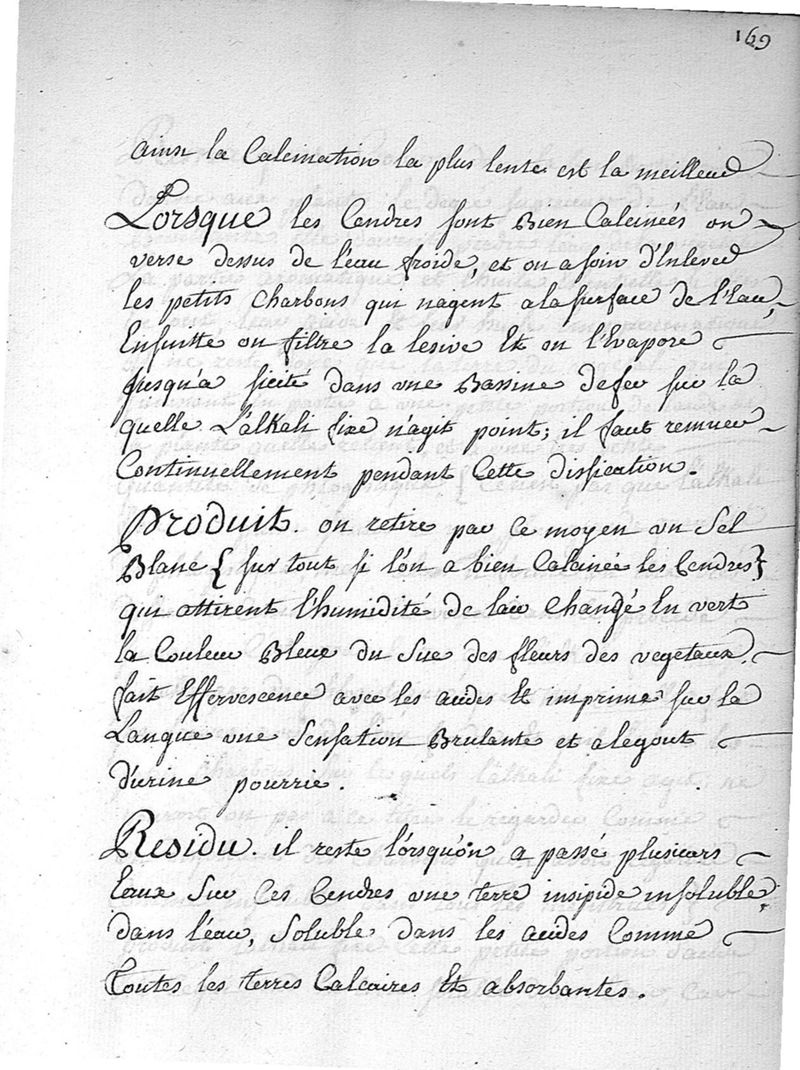 169
ainsi la Calcination la plus lente est la meilleure
Lorsque les Cendres sont Bien Calcinées on
verse dessus de l'eau froide, et on a soin d'Enlever
les petits Charbons qui nagent a la surface de l'Eau,
Ensuitte on filtre la lesive Et on l'Evapore
jusqu'a sicité dans une Bassine de fer sur la
quelle L'alkali fixe n'agit point; il faut remuer
Continuellement pendant Cette dissication.
Produit. on retire par Ce moyen un Sel
Blanc { sur tout si l'on a bien Calcinée les Cendres}
qui attirent l'humidité de l'air Change En vert
la Couleur Bleue du Suc des fleurs des vegetaux.
fait Effervescence avec les acides Et imprime sur la
Langue une Sensation Brulante et a le gout
d'urine pourrie.
Residu. il reste lórsqu'on a passé plusieurs
Eaux Sur Ces Cendres une terre insipide insoluble,
dans l'eau, Soluble dans les acides Comme
Toutes les terres Calcaires Et absorbantes.